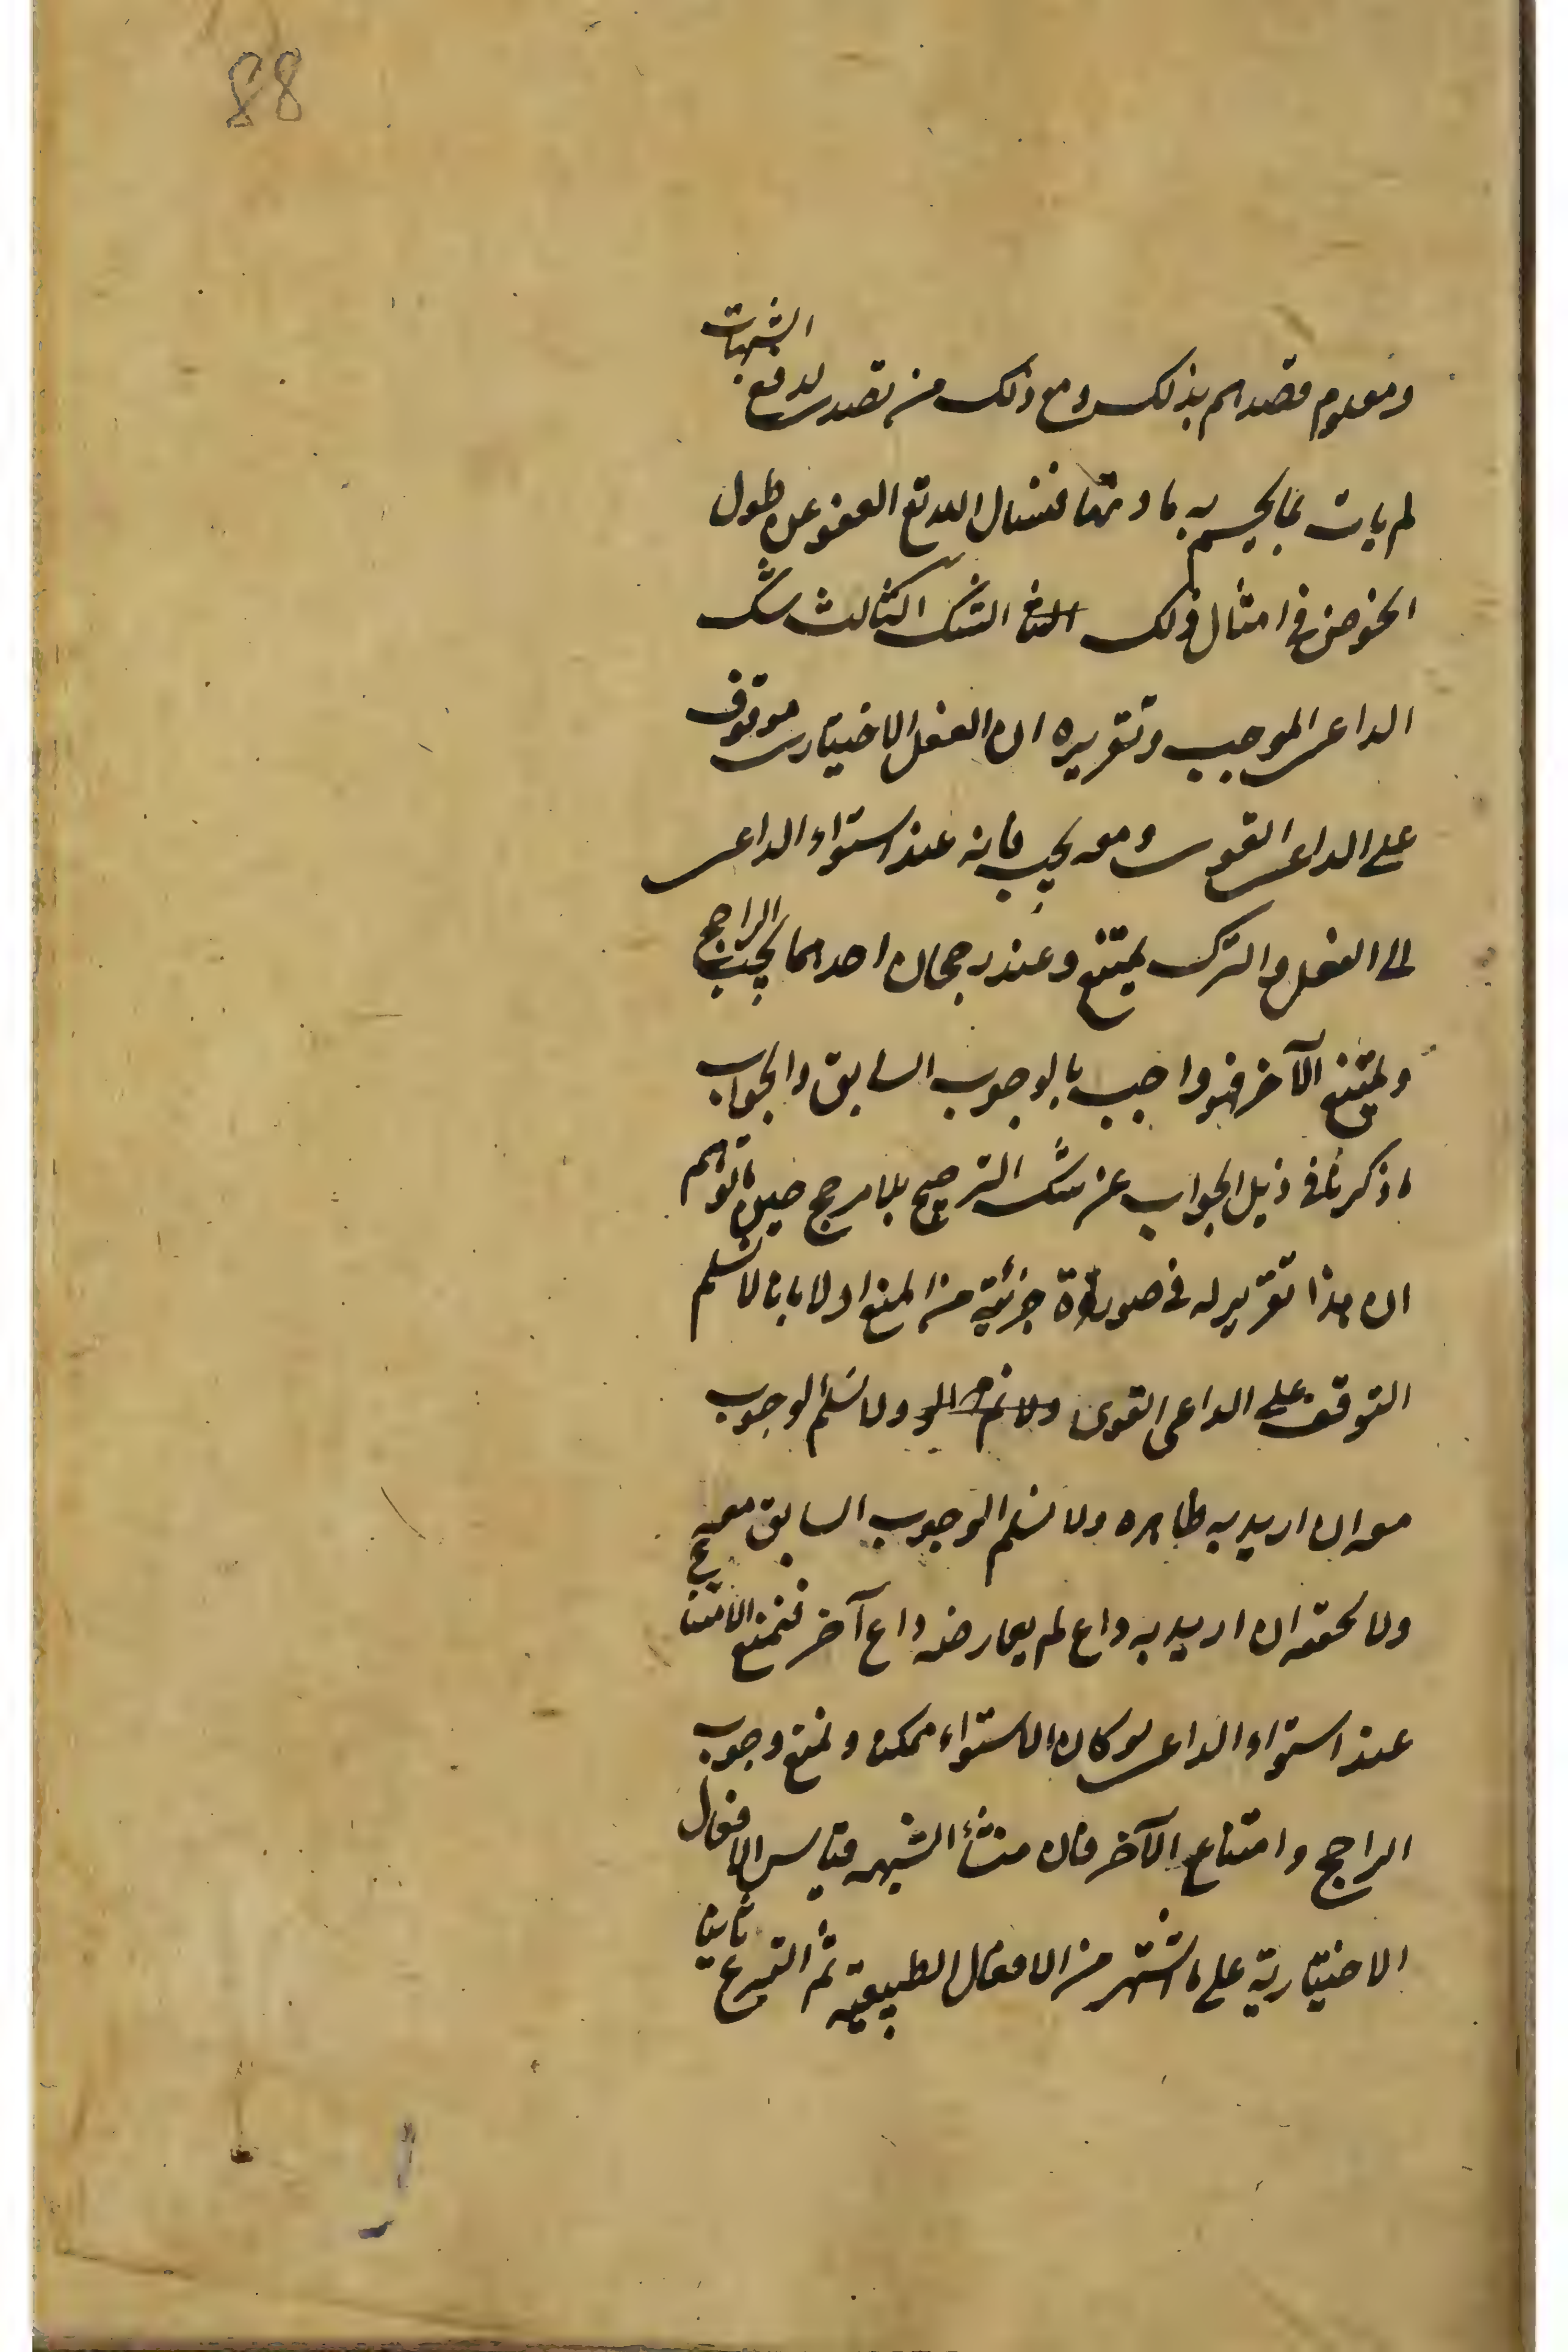 88
ومعلوم قصدهم بذلك ومع ذلك من تصدى لدفع الشبهات
لم يات بما يحسم به مادتها فنسال الله تع العفو عن طول
الخوض فى امثال ذلك الشك الثالث شك
الداعى الموجب وتقريره ان الفعل الاختيارى موقوف
على الداعى القوى ومعه يجب فانه عند استواء الداعى
الى الفعل والترك يمتنع وعند رجحان احدهما يجب الراجح
ويمتنع الآخر فهو واجب بالوجوب السابق والجواب
ما ذكرنا فى ذيل الجواب عن شك الترجيح بلا مرجح حين ما توهم
ان هذا تقرير له فى صورة جزئية من المنع اولا بانا لا نسلم
التوقف على الداعى القوى ولا نسلم الوجوب
معه ان اريد به ظاهره ولا نسلم الوجوب السابق معه
ولا تحققه ان اريد به داع لم يعارضه داع آخر فنمنع الامتناع
عند استواء الداعى لو كان الاستواء ممكنا ونمنع وجوب
الراجح وامتناع الآخر فان منشأ الشبهه قياس الافعال
الاختيارية على ما اشتهر من الافعال الطبيعية ثم التبرع ثانيا